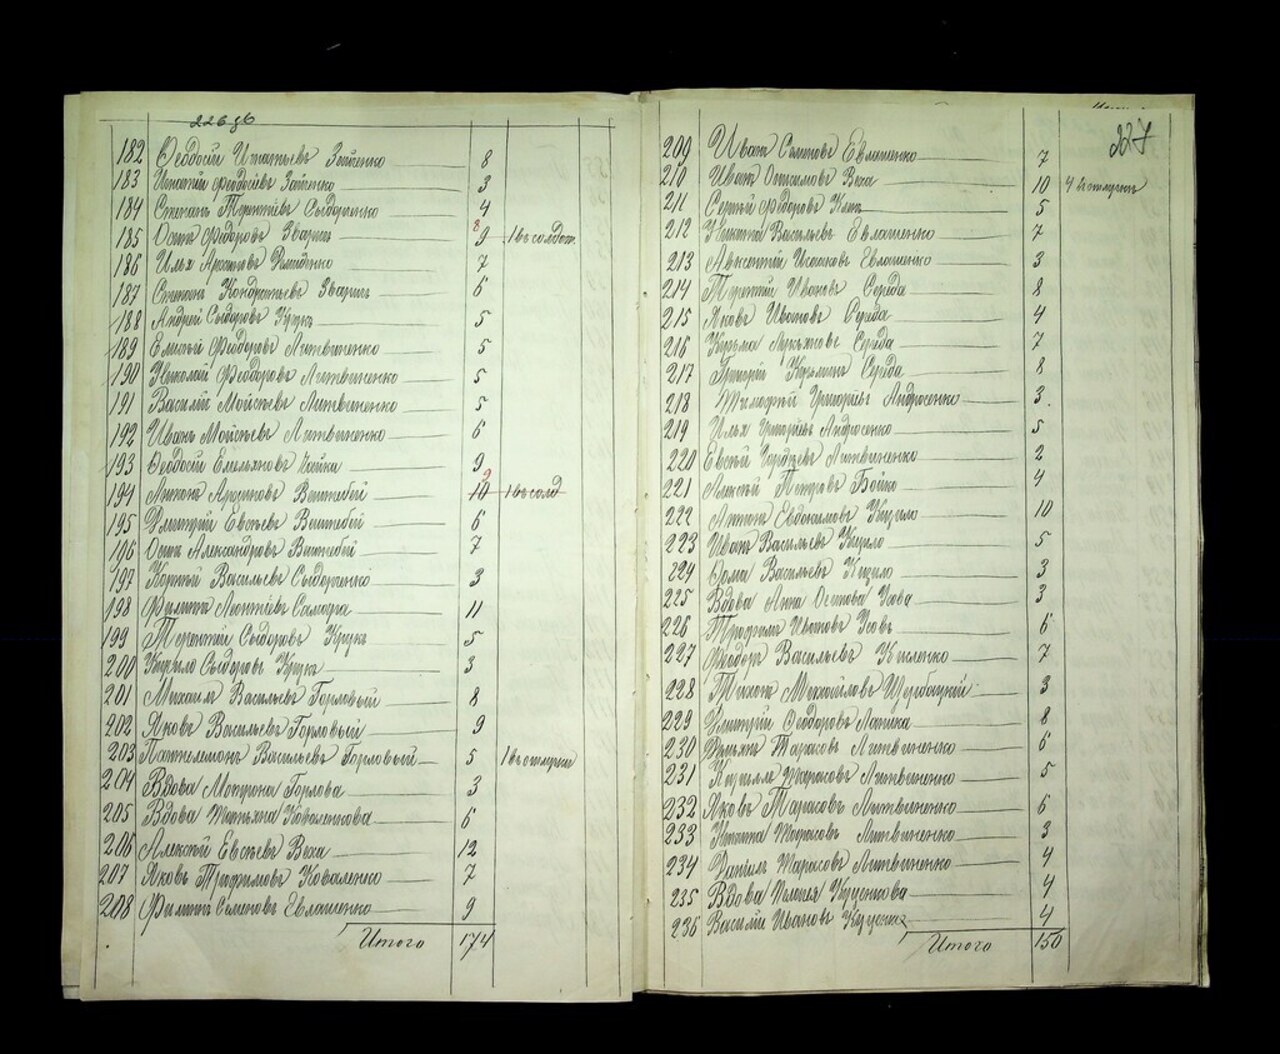 226 об
182 Феодосій Игнатьевъ Заяченко 8
183 Игнатій Феодосіевъ Заяченко 3
184 Степанъ Терентіевъ Сыдорченко 4
185 Осипъ Федоровъ Зварищ 9 8 1 въ солдат.
186 Илья Архиповъ Демиденко 7
187 Степанъ Кондратьевъ Зварищ 6
188 Андрей Сыдоровъ Крукъ 5
189 Евсѣй Федоровъ Литвиненко 5
190 Николай Феодоровъ Литвиненко 5
191 Василій Мойсѣевъ Литвиненко 5
192 Иванъ Мойсѣевъ Литвиненко 6
193 Феодосій Емельяновъ Чайка 9
194 Антонъ 10 9 1 въ солд
195 Дмитрій Евсѣевъ 6
196 Осипъ Александровъ 7
197 Корній Васильевъ Сыдорченко 3
198 Филиппъ Леонтіевъ Самодра 11
199 Терентій Сыдоровъ Крукъ 5
200 Кирило Сыдоровъ Крукъ 3
201 Михаилъ Васильевъ Горловый 8
202 Яковъ Васильевъ Горловый 9
203 Пантелемонъ Васильевъ Горловый 5 1 въ отлучке
204 Вдова Мотрона Горлова 3
205 Вдова Татьяна Коваленкова 6
206 Алексѣй Евсѣевъ Веха 12
207 Яковъ Трофимовъ Коваленко 7
208 Филиппъ Семеновъ Евлашенко 9
Итого 174
227
209 Иванъ Семеновъ Евлашенко 7
210 Иванъ Онисимовъ Веха 10 4 въ отлучке
211 Сергѣй Федоровъ 5
212 Никита Васильевъ Евлашенко 7
213 Авксентій Исаковъ Евлашенко 3
214 Терентій Ивановъ Середа 8
215 Яковъ Ивановъ Середа 4
216 Кузьма Лукьяновъ Середа 7
217 Григорій Кузьминъ Середа 8
218 Тимофѣй Григоріевъ Андросенко 3.
219 Илья Григоріевъ Андросенко 5
220 Евсѣй Гордѣевъ Литвиненко 2
221 Алексѣй Петровъ Бойко 4
222 Антонъ Евдокимовъ Кизило 10
223 Иванъ Васильевъ Кизило 5
224 Фома Васильевъ Кизило 3
225 Вдова Анна Осипова Усова 3
226 Трофимъ Ивановъ Усовъ 6
227 Феодоръ Васильевъ Кисленко 7
228 Тихонъ Михайловъ Щербацкій 3
229 Дмитрій Феодоровъ Лапика 8
230 Демьянъ Тарасовъ Литвиненко 6
231 Кириллъ Тарасовъ Литвиненко 5
232 Яковъ Тарасовъ Литвиненко 6
233 Никита Тарасовъ Литвиненко 3
234 Данило Тарасовъ Литвиненко 4
235 Вдова Пелагея 4
236 Василій Ивановъ 4
Итого 150